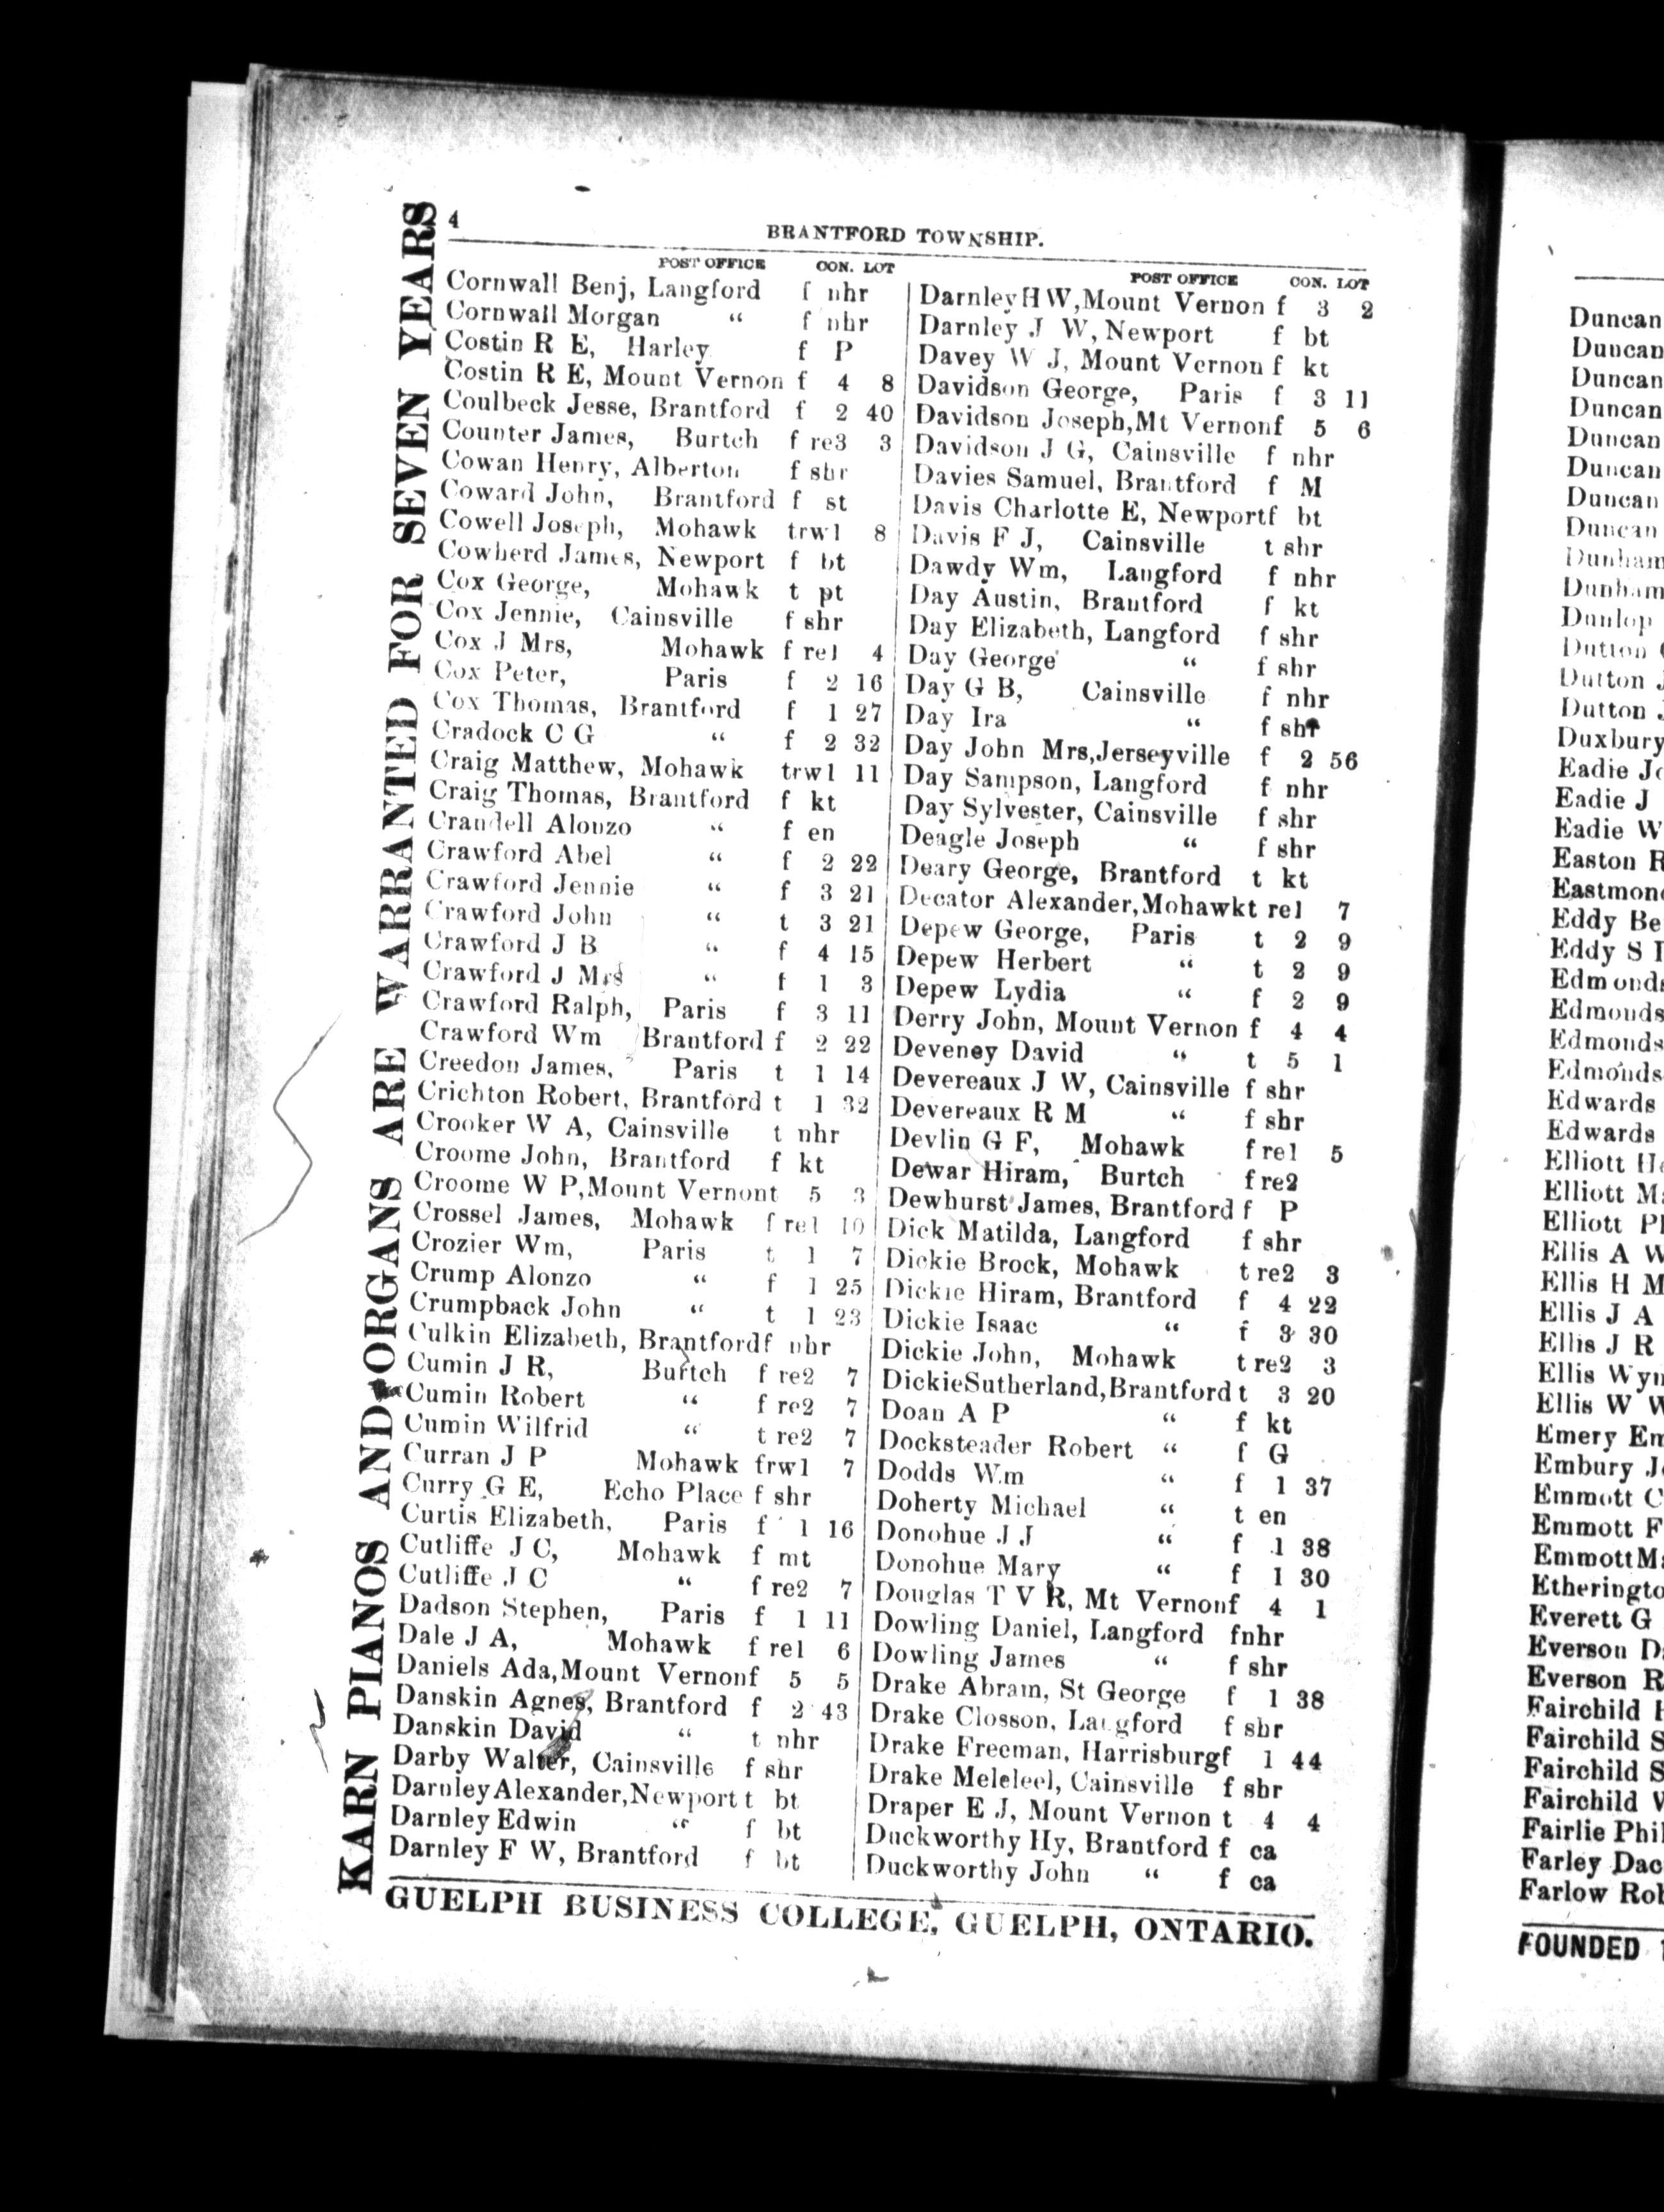 4
BRANTFORD TOWNSHIP.
POST OFFICE CON. LOT
Cornwall Benj, Langford f nhr
Cornwall Morgan “ f nhr
Costin R E, Harley f P
Costin R E, Mount Vernon f 4 8
Coulbeck Jesse, Brantford f 2 40
Counter James, Burtch f re3 3
Cowan Henry, Alberton f shr
Coward John, Brantford f st
Cowell Joseph, Mohawk trw1 8
Cowherd James, Newport f bt
Cox George, Mohawk t pt
Cox Jennie, Cainsville f shr
Cox J Mrs, Mohawk f re1 4
Cox Peter, Paris f 2 16
Cox Thomas, Brantford f 1 27
Cradock C G “ f 2 32
Craig Matthew, Mohawk trw1 11
Craig Thomas, Brantford f kt
Crandell Alonzo “ f en
Crawford Abel “ f 2 22
Crawford Jennie “ f 3 21
Crawford John “ t 3 21
Crawford J B “ f 4 15
Crawford J Mrs “ f 1 3
Crawford Ralph, Paris f 3 11
Crawford Wm Brantford f 2 22
Creedon James, Paris t 1 14
Crichton Robert, Brantford t 1 32
Crooker W A, Cainsville t nhr
Croome John, Brantford f kt
Croome W P,Mount Vernont 5 3
Crossel James, Mohawk f re1 10
Crozier Wm, Paris t 1 7
Crump Alonzo “ f 1 25
Crumpback John “ t 1 23
Culkin Elizabeth, Brantfordf nhr
Cumin J R, Burtch f re2 7
Cumin Robert “ f re2 7
Cumin Wilfrid “ t re2 7
Curran J P Mohawk frw1 7
Curry G E, Echo Place f shr
Curtis Elizabeth, Paris f 1 16
Cutliffe J C, Mohawk f mt
Cutliffe J C “ f re2 7
Dadson Stephen, Paris f 1 11
Dale J A, Mohawk f re1 6
Daniels Ada,Mount Vernonf 5 5
Danskin Agnes, Brantford f 2 43
Danskin David “ t nhr
Darby Walter, Cainsville f shr
Darnley Alexander,Newport t bt
Darnley Edwin “ f bt
Darnley F W, Brantford f bt
POST OFFICE CON. LOT
Darnley H W,Mount Vernon f 3 2
Darnley J W, Newport f bt
Davey W J, Mount Vernon f kt
Davidson George, Paris f 3 11
Davidson Joseph,Mt Vernonf 5 6
Davidson J G, Cainsville f nhr
Davies Samuel, Brantford f M
Davis Charlotte E, Newportf bt
Davis F J, Cainsville t shr
Dawdy Wm, Langford f nhr
Day Austin, Brantford f kt
Day Elizabeth, Langford f shr
Day George “ f shr
Day G B, Cainsville f nhr
Day Ira “ f shr
Day John Mrs,Jerseyville f 2 56
Day Sampson, Langford f nhr
Day Sylvester, Cainsville f shr
Deagle Joseph “ f shr
Deary George, Brantford t kt
Decator Alexander,Mohawkt re1 7
Depew George, Paris t 2 9
Depew Herbert “ t 2 9
Depew Lydia “ f 2 9
Derry John, Mount Vernon f 4 4
Deveney David “ t 5 1
Devereaux J W, Cainsville f shr
Devereaux R M “ f shr
Devlin G F, Mohawk f re1 5
Dewar Hiram, Burtch f re2
Dewhurst James, Brantford f P
Dick Matilda, Langford f shr
Dickie Brock, Mohawk t re2 3
Dickie Hiram, Brantford f 4 22
Dickie Isaac “ f 3 30
Dickie John, Mohawk t re2 3
DickieSutherland,Brantford t 3 20
Doan A P “ f kt
Docksteader Robert “ f G
Dodds Wm “ f 1 37
Doherty Michael “ t en
Donohue J J “ f 1 38
Donohue Mary “ f 1 30
Douglas T V R, Mt Vernonf 4 1
Dowling Daniel, Langford fnhr
Dowling James “ f shr
Drake Abram, St George f 1 38
Drake Closson, Langford f shr
Drake Freeman, Harrisburgf 1 44
Drake Meleleel, Cainsville f shr
Draper E J, Mount Vernon t 4 4
Duckworthy Hy, Brantford f ca
Duckworthy John “ f ca
KARN PIANOS AND ORGANS ARE WARRANTED FOR SEVEN YEARS
GUELPH BUSINESS COLLEGE, GUELPH, ONTARIO.
Duncan
Duncan
Duncan
Duncan
Duncan
Duncan
Duncan
Duncan
Dunham
Dunham
Dunlop
Dutton
Dutton
Dutton
Duxbury
Eadie
Eadie J
Eadie W
Easton
Eddy
Eddy S
Edwards
Edwards
Elliott
Elliott
Elliott
Ellis A
Ellis H
Ellis J A
Ellis J R
Ellis
Ellis W
Emery
Embury
Emmott
Emmott
Everett G
Everson
Everson
Fairchild
Fairchild
Fairchild
Fairchild
Fairlie
Farley
Farlow
FOUNDED